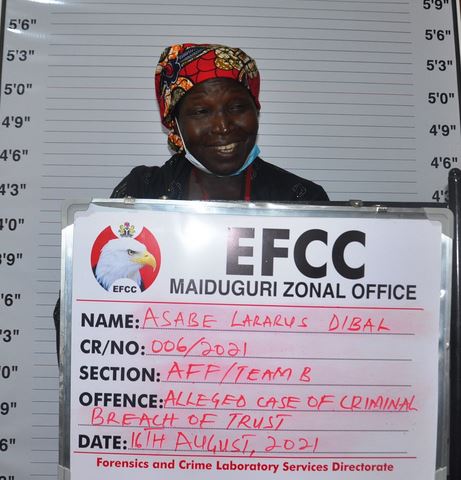 5'9"
5'6"
5'6"
5'3"
5'3"
5'0"
5'0"
4'9"
4'9"
4'6"
4'6"
4'3"
4'3"
4'0"
3'9"
EFCC
EFCC
MAIDUGURI ZONAL OFFICE
NAME: ASABE LARARUS DIBAL
CR/NO: 006/2021
SECTION: AFF/TEAM B
OFFENCE: ALLEGED CASE OF CRIMINAL
BREACH OF TRUST
DATE: 16TH AUGUST, 2021
Forensics and Crime Laboratory Services Directorate